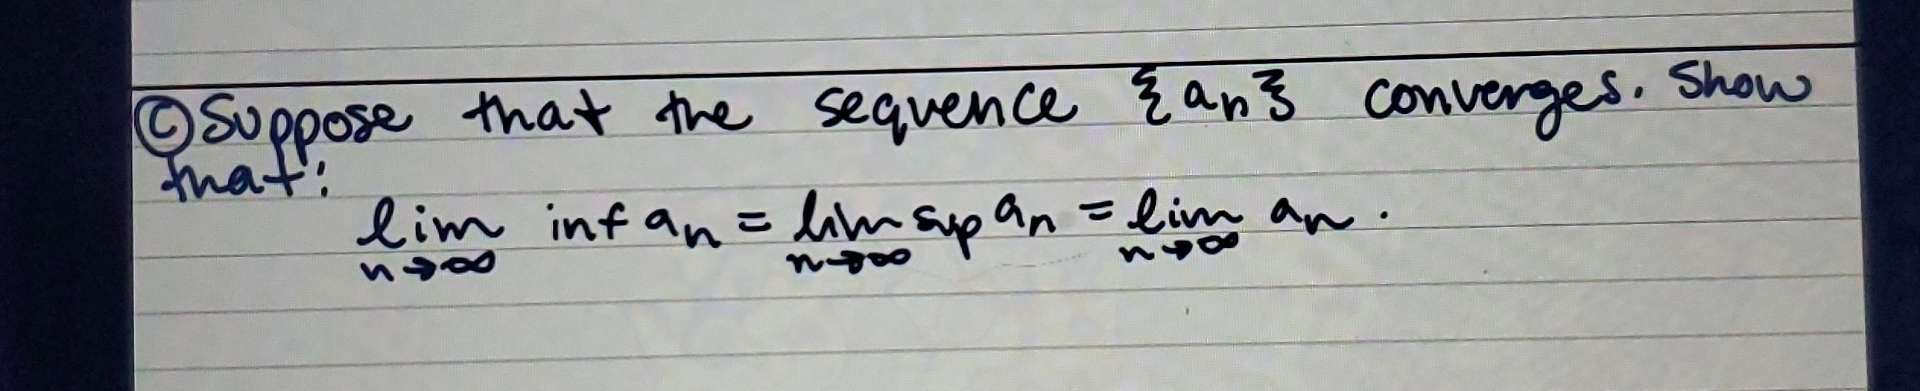 Ⓒ Suppose that the sequence {an} converges. Show
that:
lim inf an = lim sup an = lim an.
n→∞ n→∞ n→∞